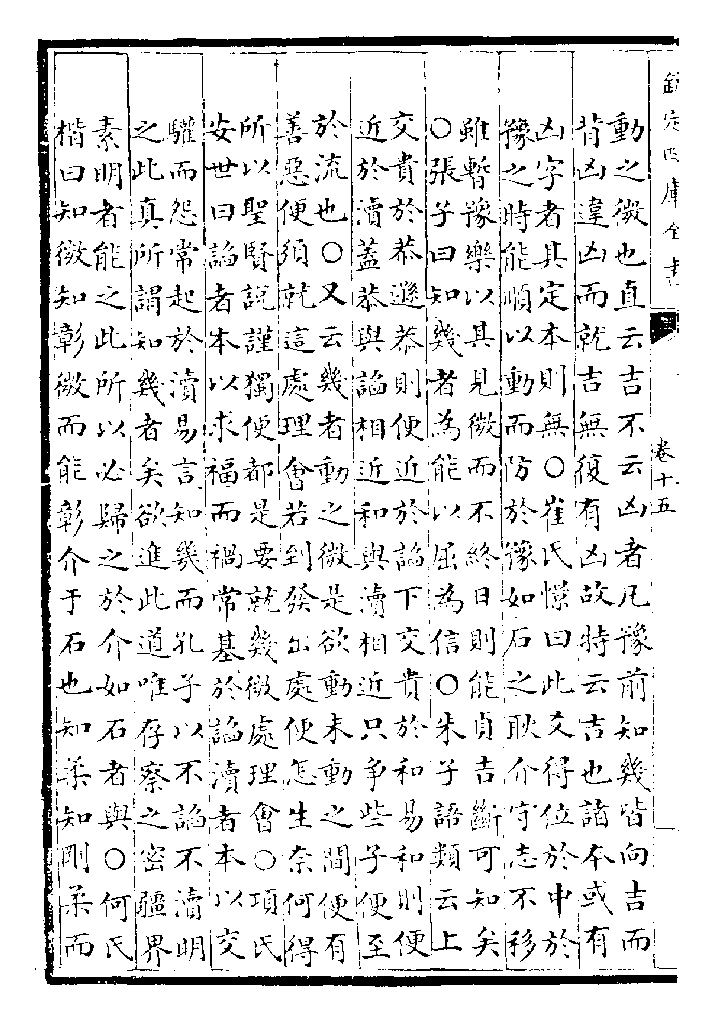 欽定四庫全書
卷十五
動之微也直云吉不云凶者凡豫前知幾皆向吉而
背凶違凶而就吉無復有凶故特云吉也諸本或有
凶字者其定本則無○崔氏憬曰此爻得位於中於
豫之時能順以動而防於豫如石之耿介守志不移
雖暫豫樂以其見微而不終日則能貞吉斷可知矣
○張子曰知幾者為能以屈為信○朱子語類云上
交貴於恭遜恭則便近於諂下交貴於和易和則便
近於瀆蓋恭與諂相近和與瀆相近只爭些子便至
於流也○又云幾者動之微是欲動未動之間便有
善惡便須就這處理會若到發出處便怎生奈何得
所以聖賢說謹獨便都是要就幾微處理會○項氏
安世曰諂者本以求福而禍常基於諂瀆者本以交
驩而怨常起於瀆易言知幾而孔子以不諂不瀆明
之此真所謂知幾者矣欲進此道唯存察之密疆界
素明者能之此所以必歸之於介如石者與○何氏
楷曰知微知彰微而能彰介于石也知柔知剛柔而